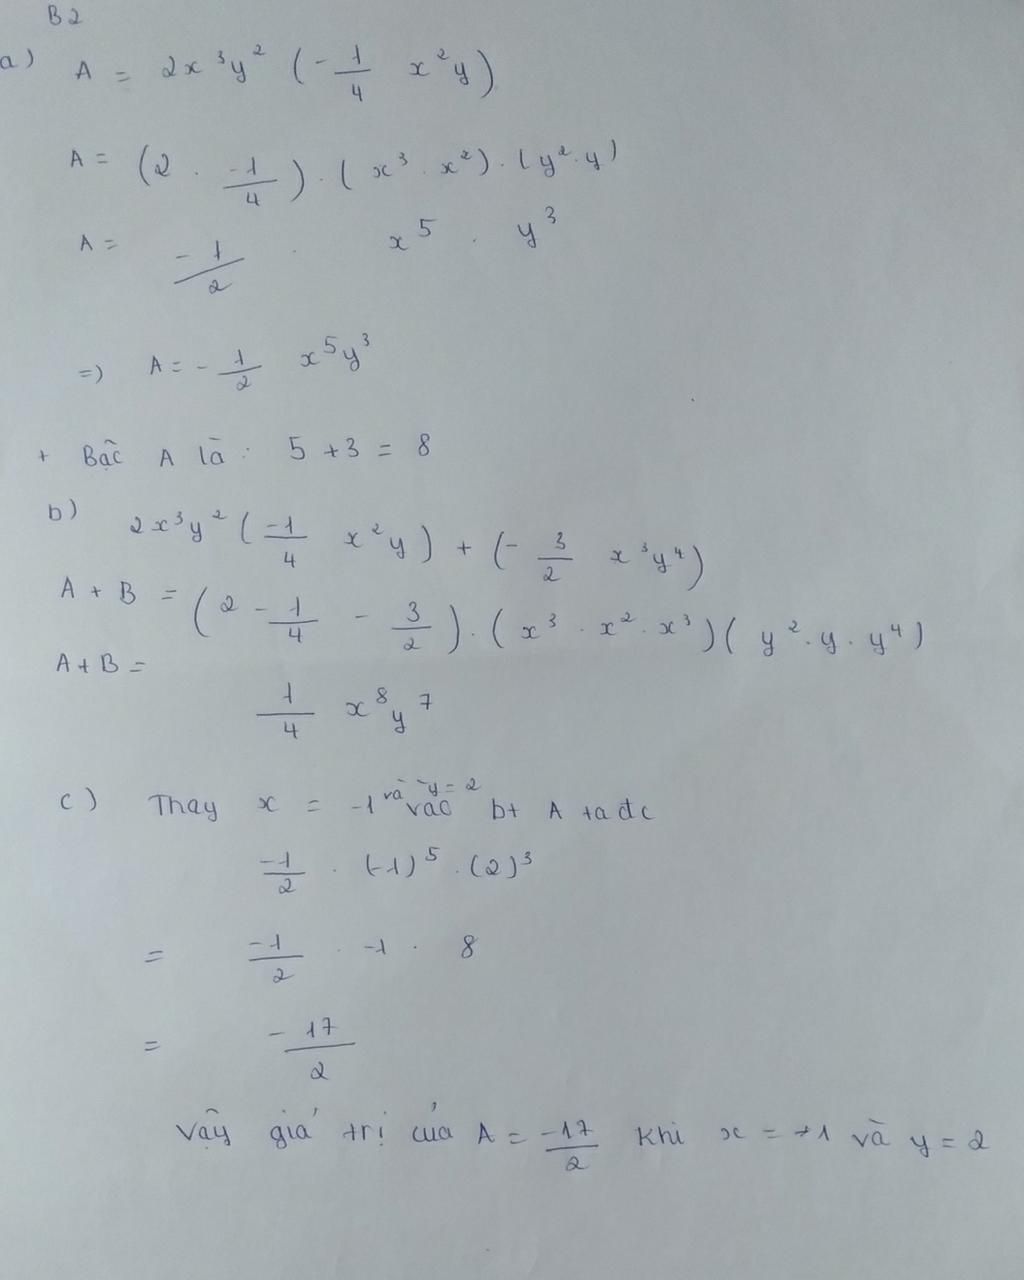 B2
a) A = 2x³y² (-1/4 x²y)
A = (2 . -1/4) . (x³ . x²) . (y² . y)
A = -1/2 . x⁵ . y³
=) A = - 1/2 x⁵y³
+ Bậc A là : 5 + 3 = 8
b) 2x³y² (-1/4 x²y) + (- 3/2 x³y⁴)
A + B = (2 - 1/4 - 3/2) . (x³ . x² . x³) (y² . y . y⁴)
A + B =
1/4 x⁸y⁷
c) Thay x = -1 và y = 2 vào bt A ta đc
-1/2 . (-1)⁵ . (2)³
= -1/2 . -1 . 8
= -17/2
Vậy giá trị của A = -17/2 khi x = -1 và y = 2